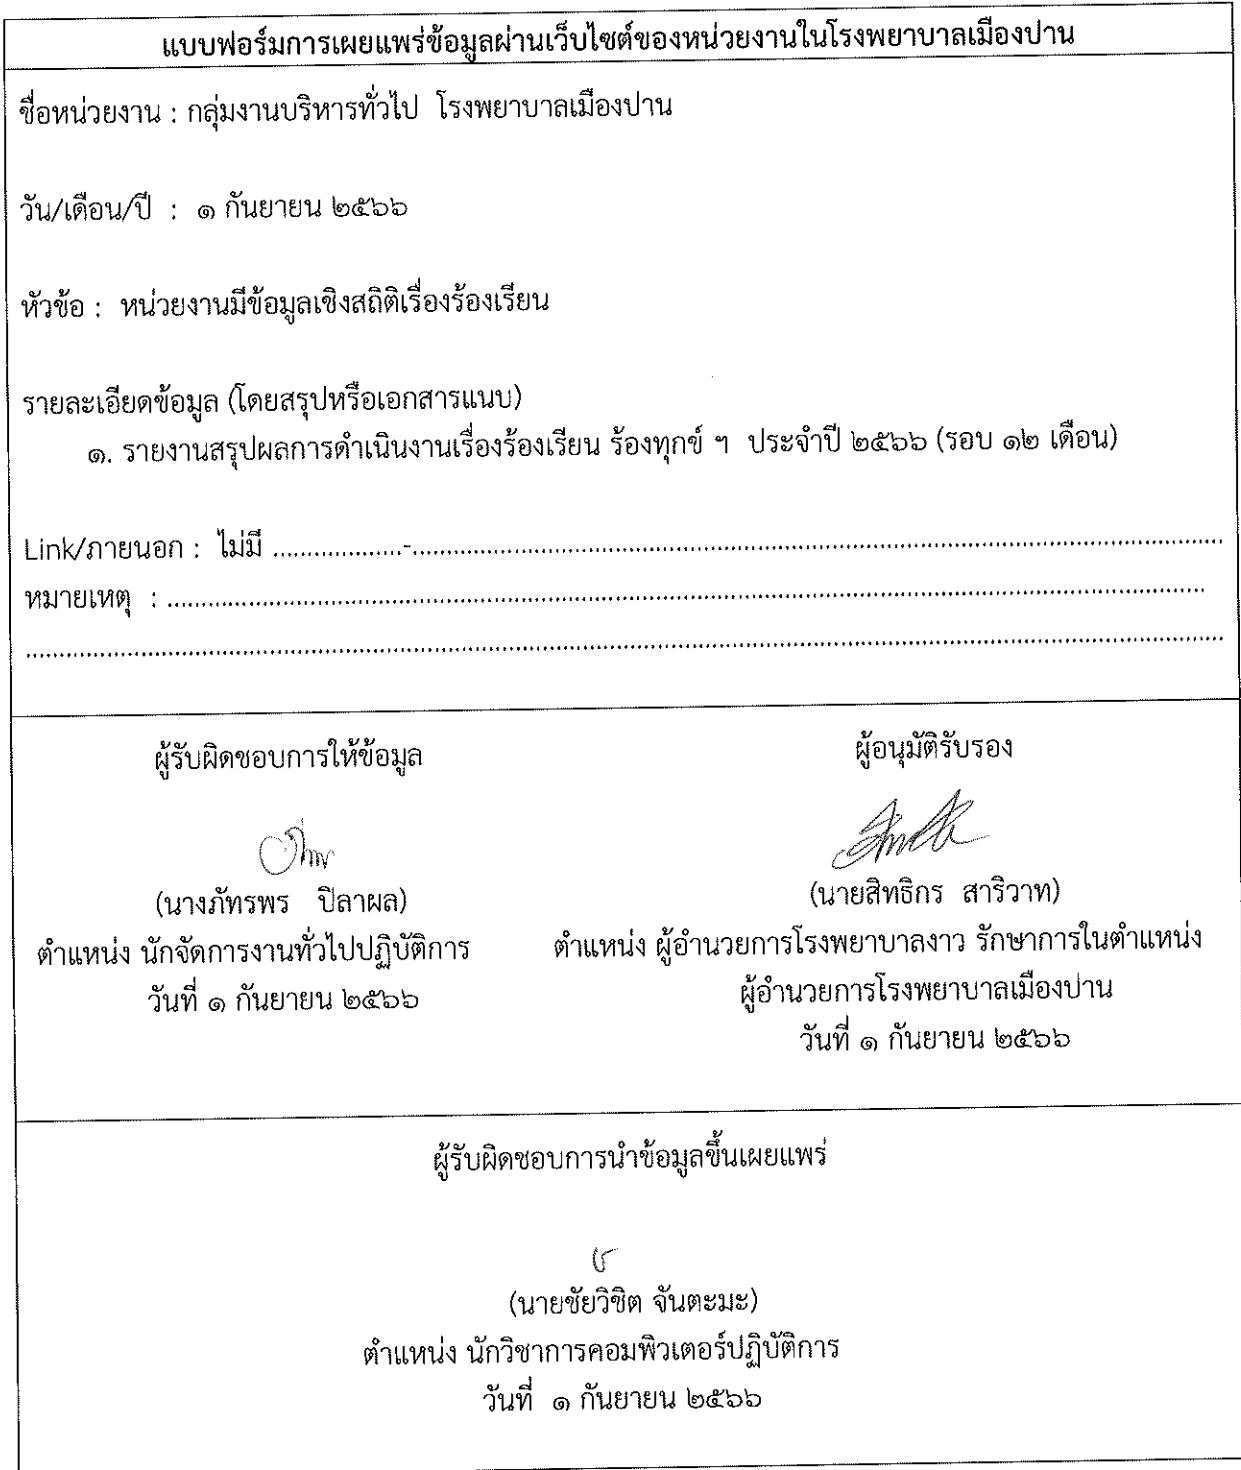 แบบฟอร์มการเผยแพร่ข้อมูลผ่านเว็บไซต์ของหน่วยงานในโรงพยาบาลเมืองปาน
ชื่อหน่วยงาน : กลุ่มงานบริหารทั่วไป โรงพยาบาลเมืองปาน
วัน/เดือน/ปี : ๑ กันยายน ๒๕๖๖
หัวข้อ : หน่วยงานมีข้อมูลเชิงสถิติเรื่องร้องเรียน
รายละเอียดข้อมูล (โดยสรุปหรือเอกสารแนบ)
๑. รายงานสรุปผลการดำเนินงานเรื่องร้องเรียน ร้องทุกข์ ฯ ประจำปี ๒๕๖๖ (รอบ ๑๒ เดือน)
Link/ภายนอก : ไม่มี ...................-........................................................................................................................
หมายเหตุ : ........................................................................................................................................................
................................................................................................................................................................................
ผู้รับผิดชอบการให้ข้อมูล
(นางภัทรพร ปิลาผล)
ตำแหน่ง นักจัดการงานทั่วไปปฏิบัติการ
วันที่ ๑ กันยายน ๒๕๖๖
ผู้อนุมัติรับรอง
(นายสิทธิกร สาริวาท)
ตำแหน่ง ผู้อำนวยการโรงพยาบาลงาว รักษาการในตำแหน่ง
ผู้อำนวยการโรงพยาบาลเมืองปาน
วันที่ ๑ กันยายน ๒๕๖๖
ผู้รับผิดชอบการนำข้อมูลขึ้นเผยแพร่
(นายชัยวิชิต จันตะมะ)
ตำแหน่ง นักวิชาการคอมพิวเตอร์ปฏิบัติการ
วันที่ ๑ กันยายน ๒๕๖๖